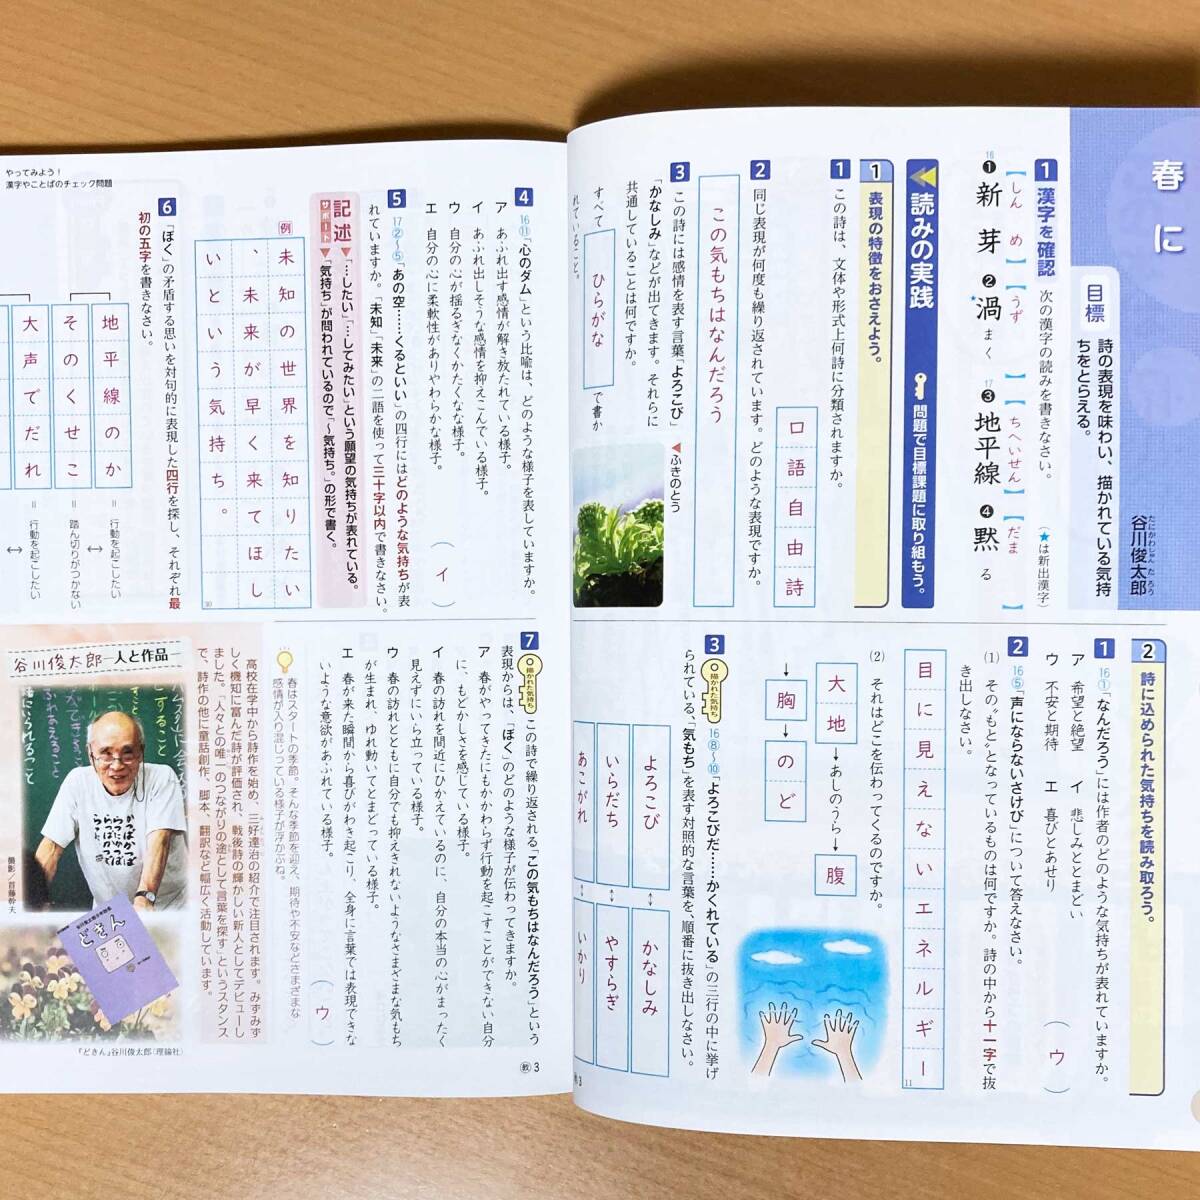 春に
谷川俊太郎
たにかわしゅんたろう
目標
詩の表現を味わい、描かれている気持
ちをとらえる。
1 漢字を確認 次の漢字の読みを書きなさい。
(★は新出漢字)
16
❶新芽【しんめ】
❷渦まく【うず】
17
❸地平線【ちへいせん】
❹黙る【だま】
読みの実践
問題で目標課題に取り組もう。
1 表現の特徴をおさえよう。
1 この詩は、文体や形式上何詩に分類されますか。
口語自由詩
2 同じ表現が何度も繰り返されています。どのような表現ですか。
この気もちはなんだろう
3 この詩には感情を表す言葉「よろこび」
「かなしみ」などが出てきます。それらに
共通していることは何ですか。
すべて ひらがな で書か
れていること。
ふきのとう
2 詩に込められた気持ちを読み取ろう。
1 16① 「なんだろう」には作者のどのような気持ちが表れていますか。
ア 希望と絶望 イ 悲しみとまどい
ウ 不安と期待 エ 喜びとあせり
(ウ)
2 16⑤ 「声にならないさけび」について答えなさい。
(1) その“もと”となっているものは何ですか。詩の中から十一字で抜
き出しなさい。
目に見えないエネルギー
11
(2) それはどこを伝わってくるのですか。
大地→あしのうら→腹
→胸→のど
3 描かれた気持ち 16⑧〜⑩ 「よろこびだ……かくれている」の三行の中に挙げ
られている、「気もち」を表す対照的な言葉を、順番に抜き出しなさい。
よろこび ↔ かなしみ
いらだち ↔ やすらぎ
あこがれ ↔ いかり
教3
4 16⑪ 「心のダム」という比喩は、どのような様子を表していますか。
ア あふれ出す感情が解き放たれている様子。
イ あふれ出しそうな感情を抑えこんでいる様子。
ウ 自分の心が揺るぎなくかたくなな様子。
エ 自分の心に柔軟性がありやわらかな様子。
(イ)
5 17②〜⑤ 「あの空……くるといい」の四行にはどのような気持ちが表
れていますか。「未知」「未来」の二語を使って三十字以内で書きなさい。
記述サポート
▼「…したい」「…してみたい」という願望の気持ちが表れている。
▼「気持ち」が問われているので、「〜気持ち。」の形で書く。
例
未知の世界を知りたい
、未来が早く来てほし
いという気持ち。
30
6 「ぼく」の矛盾する思いを対句的に表現した四行を探し、それぞれ最
初の五字を書きなさい。
地平線のか =行動を起こしたい
↔
そのくせこ =踏ん切りがつかない
大声でだれ =行動を起こしたい
↔
やってみよう!
漢字やことばのチェック問題
7 描かれた気持ち この詩で繰り返される「この気もちはなんだろう」という
表現からは、「ぼく」のどのような様子が伝わってきますか。
ア 春がやってきたにもかかわらず行動を起こすことができない自分
に、もどかしさを感じている様子。
イ 春の訪れを間近にひかえているのに、自分の本当の心がまったく
見えずにいら立っている様子。
ウ 春の訪れとともに自分でも抑えきれないようなさまざまな気もち
が生まれ、ゆれ動いてとまどっている様子。
エ 春が来た瞬間から喜びがわき起こり、全身に言葉では表現できな
いような意欲があふれている様子。
(ウ)
春はスタートの季節。そんな季節を迎え、期待や不安などさまざまな
感情が入り混じっている様子が浮かぶね。
谷川俊太郎―人と作品―
高校在学中から詩作を始め、三好達治の紹介で注目されます。みずみず
しく機知に富んだ詩が評価され、戦後詩の輝かしい新人としてデビューし
ました。「人々との唯一のつながりの途として言葉を探す」というスタンス
で、詩作の他に童話創作、脚本、翻訳など幅広く活動しています。
撮影/首藤幹夫
どきん
『どきん』谷川俊太郎(理論社)
教3